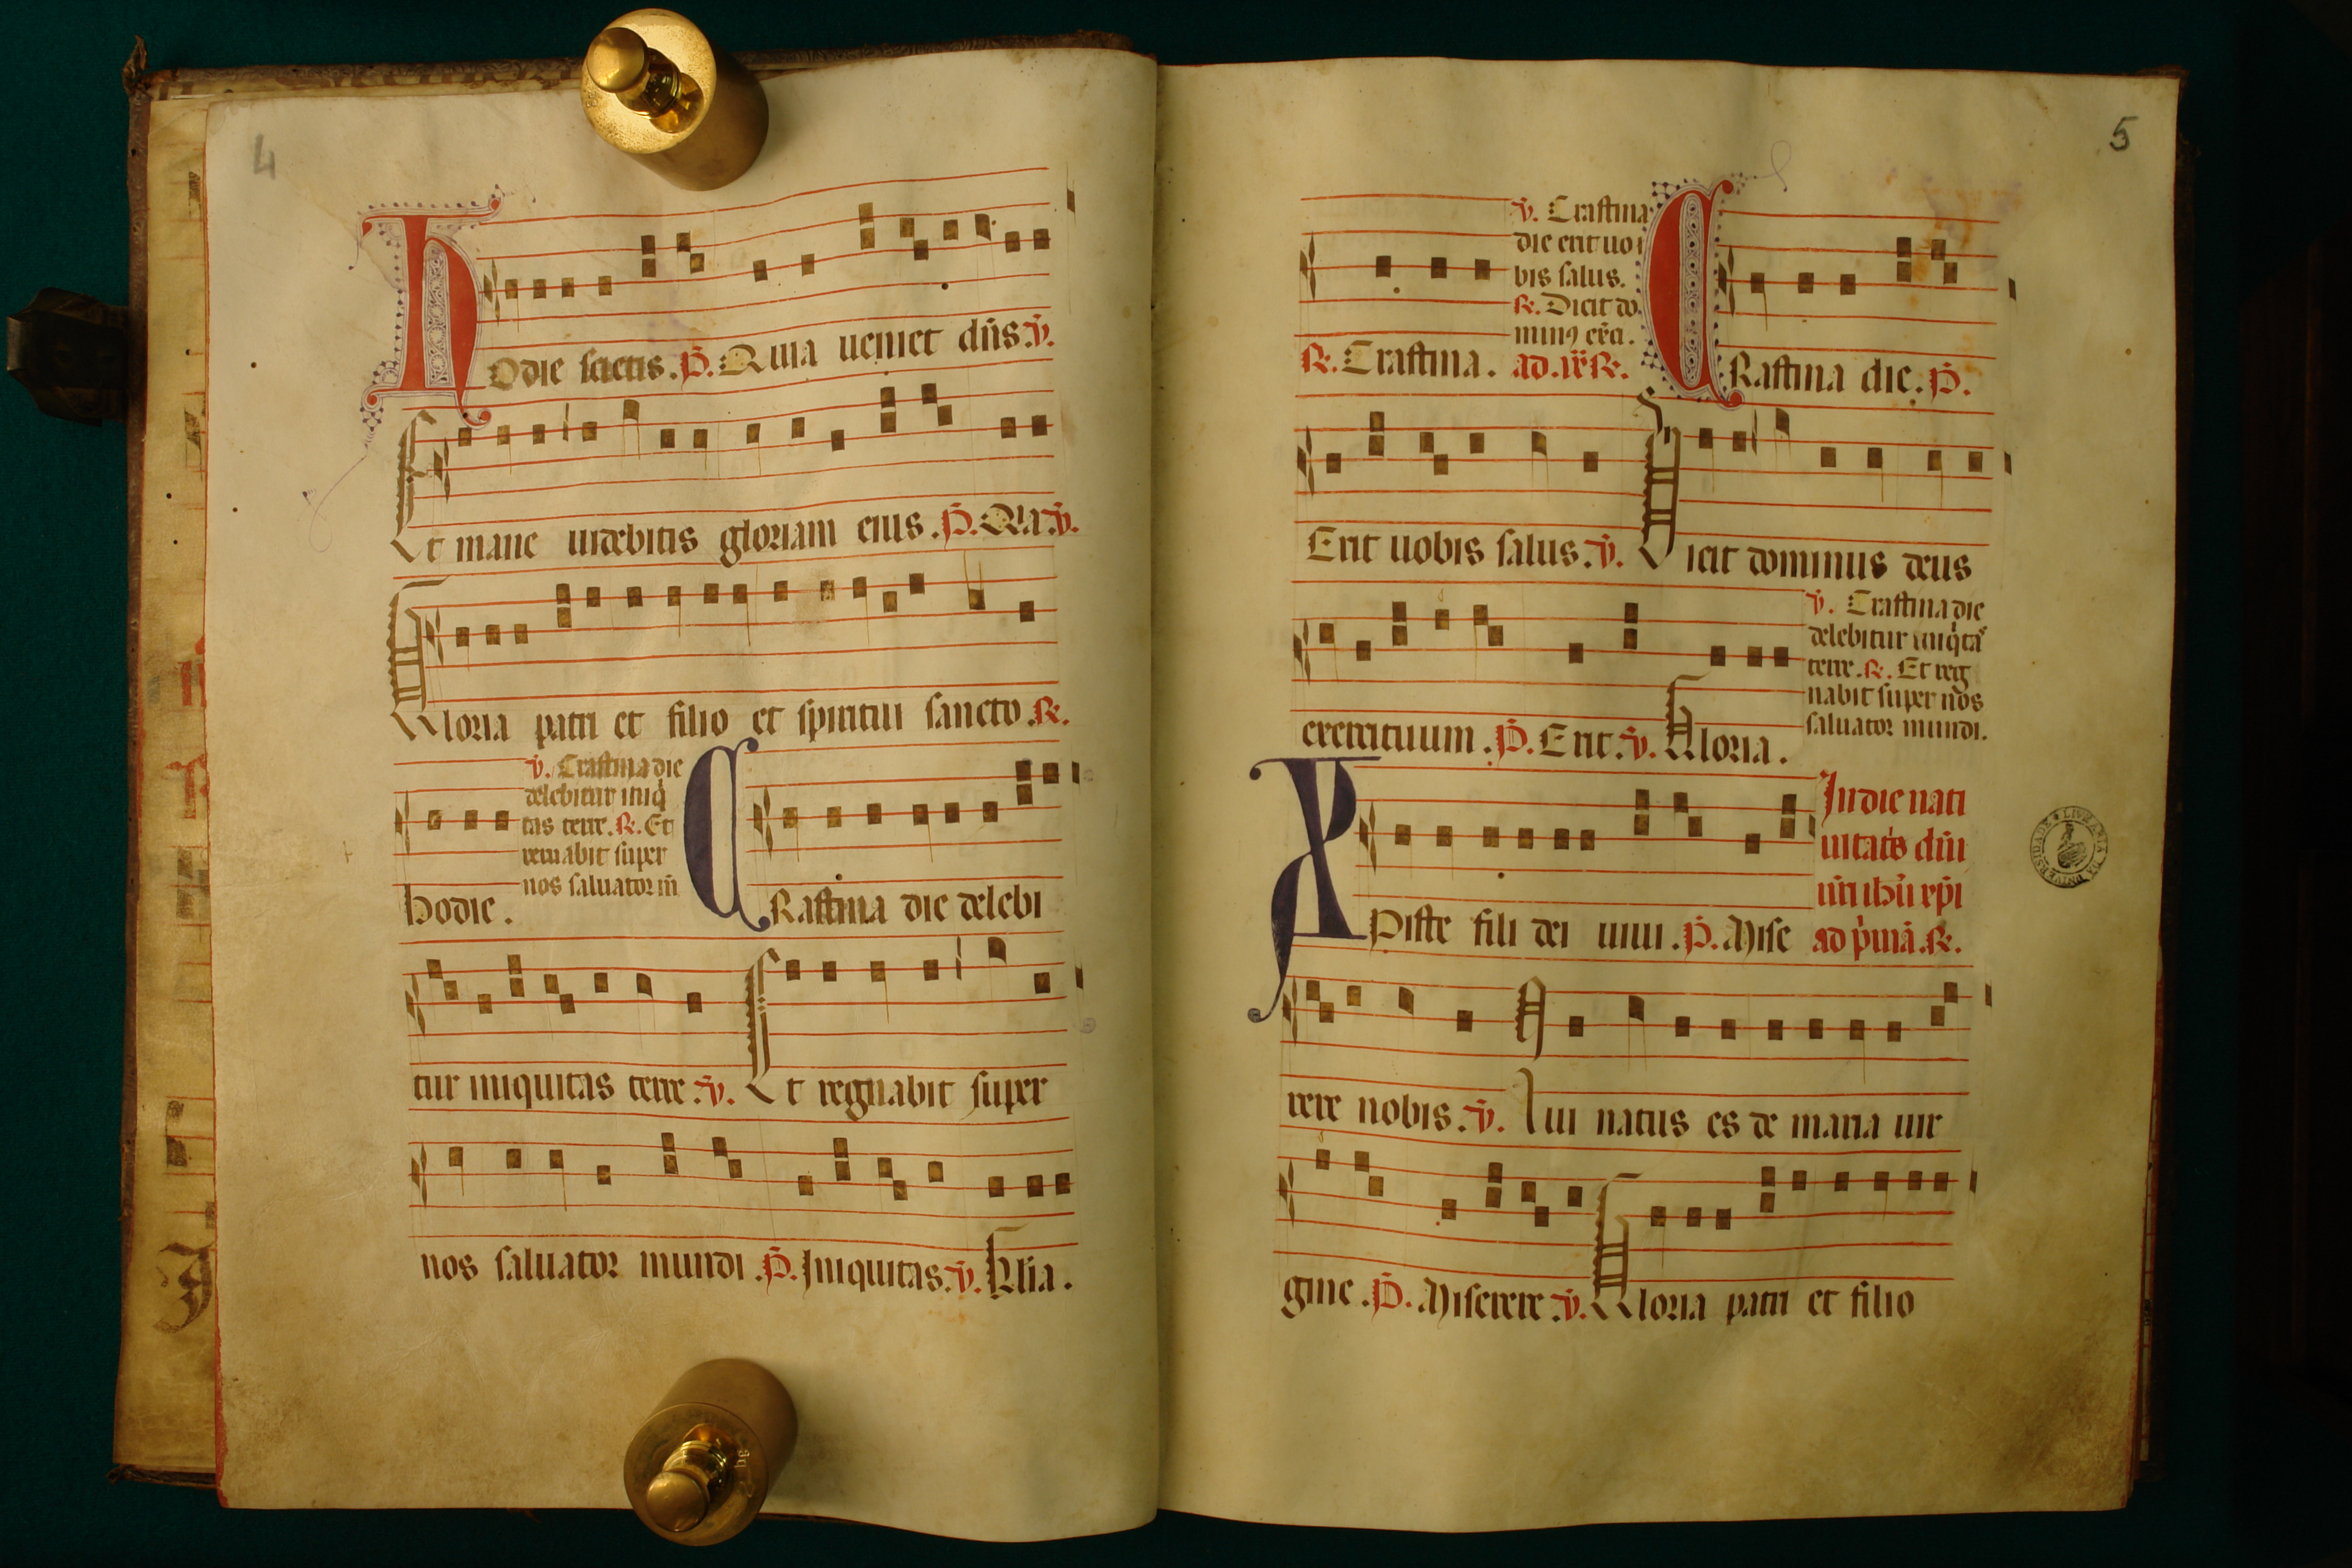 4
Hodie scietis. P. Quia ueniet dn̄s. v̄.
Et mane uidebitis gloriam eius. P. Q̄ia. v̄.
Gloria patri et filio et spiritui sancto. R.
v̄. Crastina die
delebitur iniq̄
tas terre. R. Et
regnabit super
nos saluator m̄
hodie.
CRastina die delebi
tur iniquitas terre. v̄. Et regnabit super
nos saluator mundi. P. Iniquitas. v̄. Gl̄ia.
5
v̄. Crastina
die erit uo
bis salus.
R. Dicit do
minꝰ
R. Crastina. ad. ix. R.
CRastina die. P.
Erit uobis salus. v̄. Dicit dominus deus
exercituum. P. Erit. v̄. Gloria.
v̄. Crastina die
delebitur iniq̄tas
terre. R. Et reg
nabit super nos
saluator mundi.
XPiste fili dei uiui. P. Mise
In die nati
uitatis dn̄i
nr̄i ihū xp̄i
ad p̄mā. R.
rere nobis. v̄. Qui natus es de maria uir
gine. P. Miserere. v̄. Gloria patri et filio
LIVRARIA DA UNIVERSIDADE